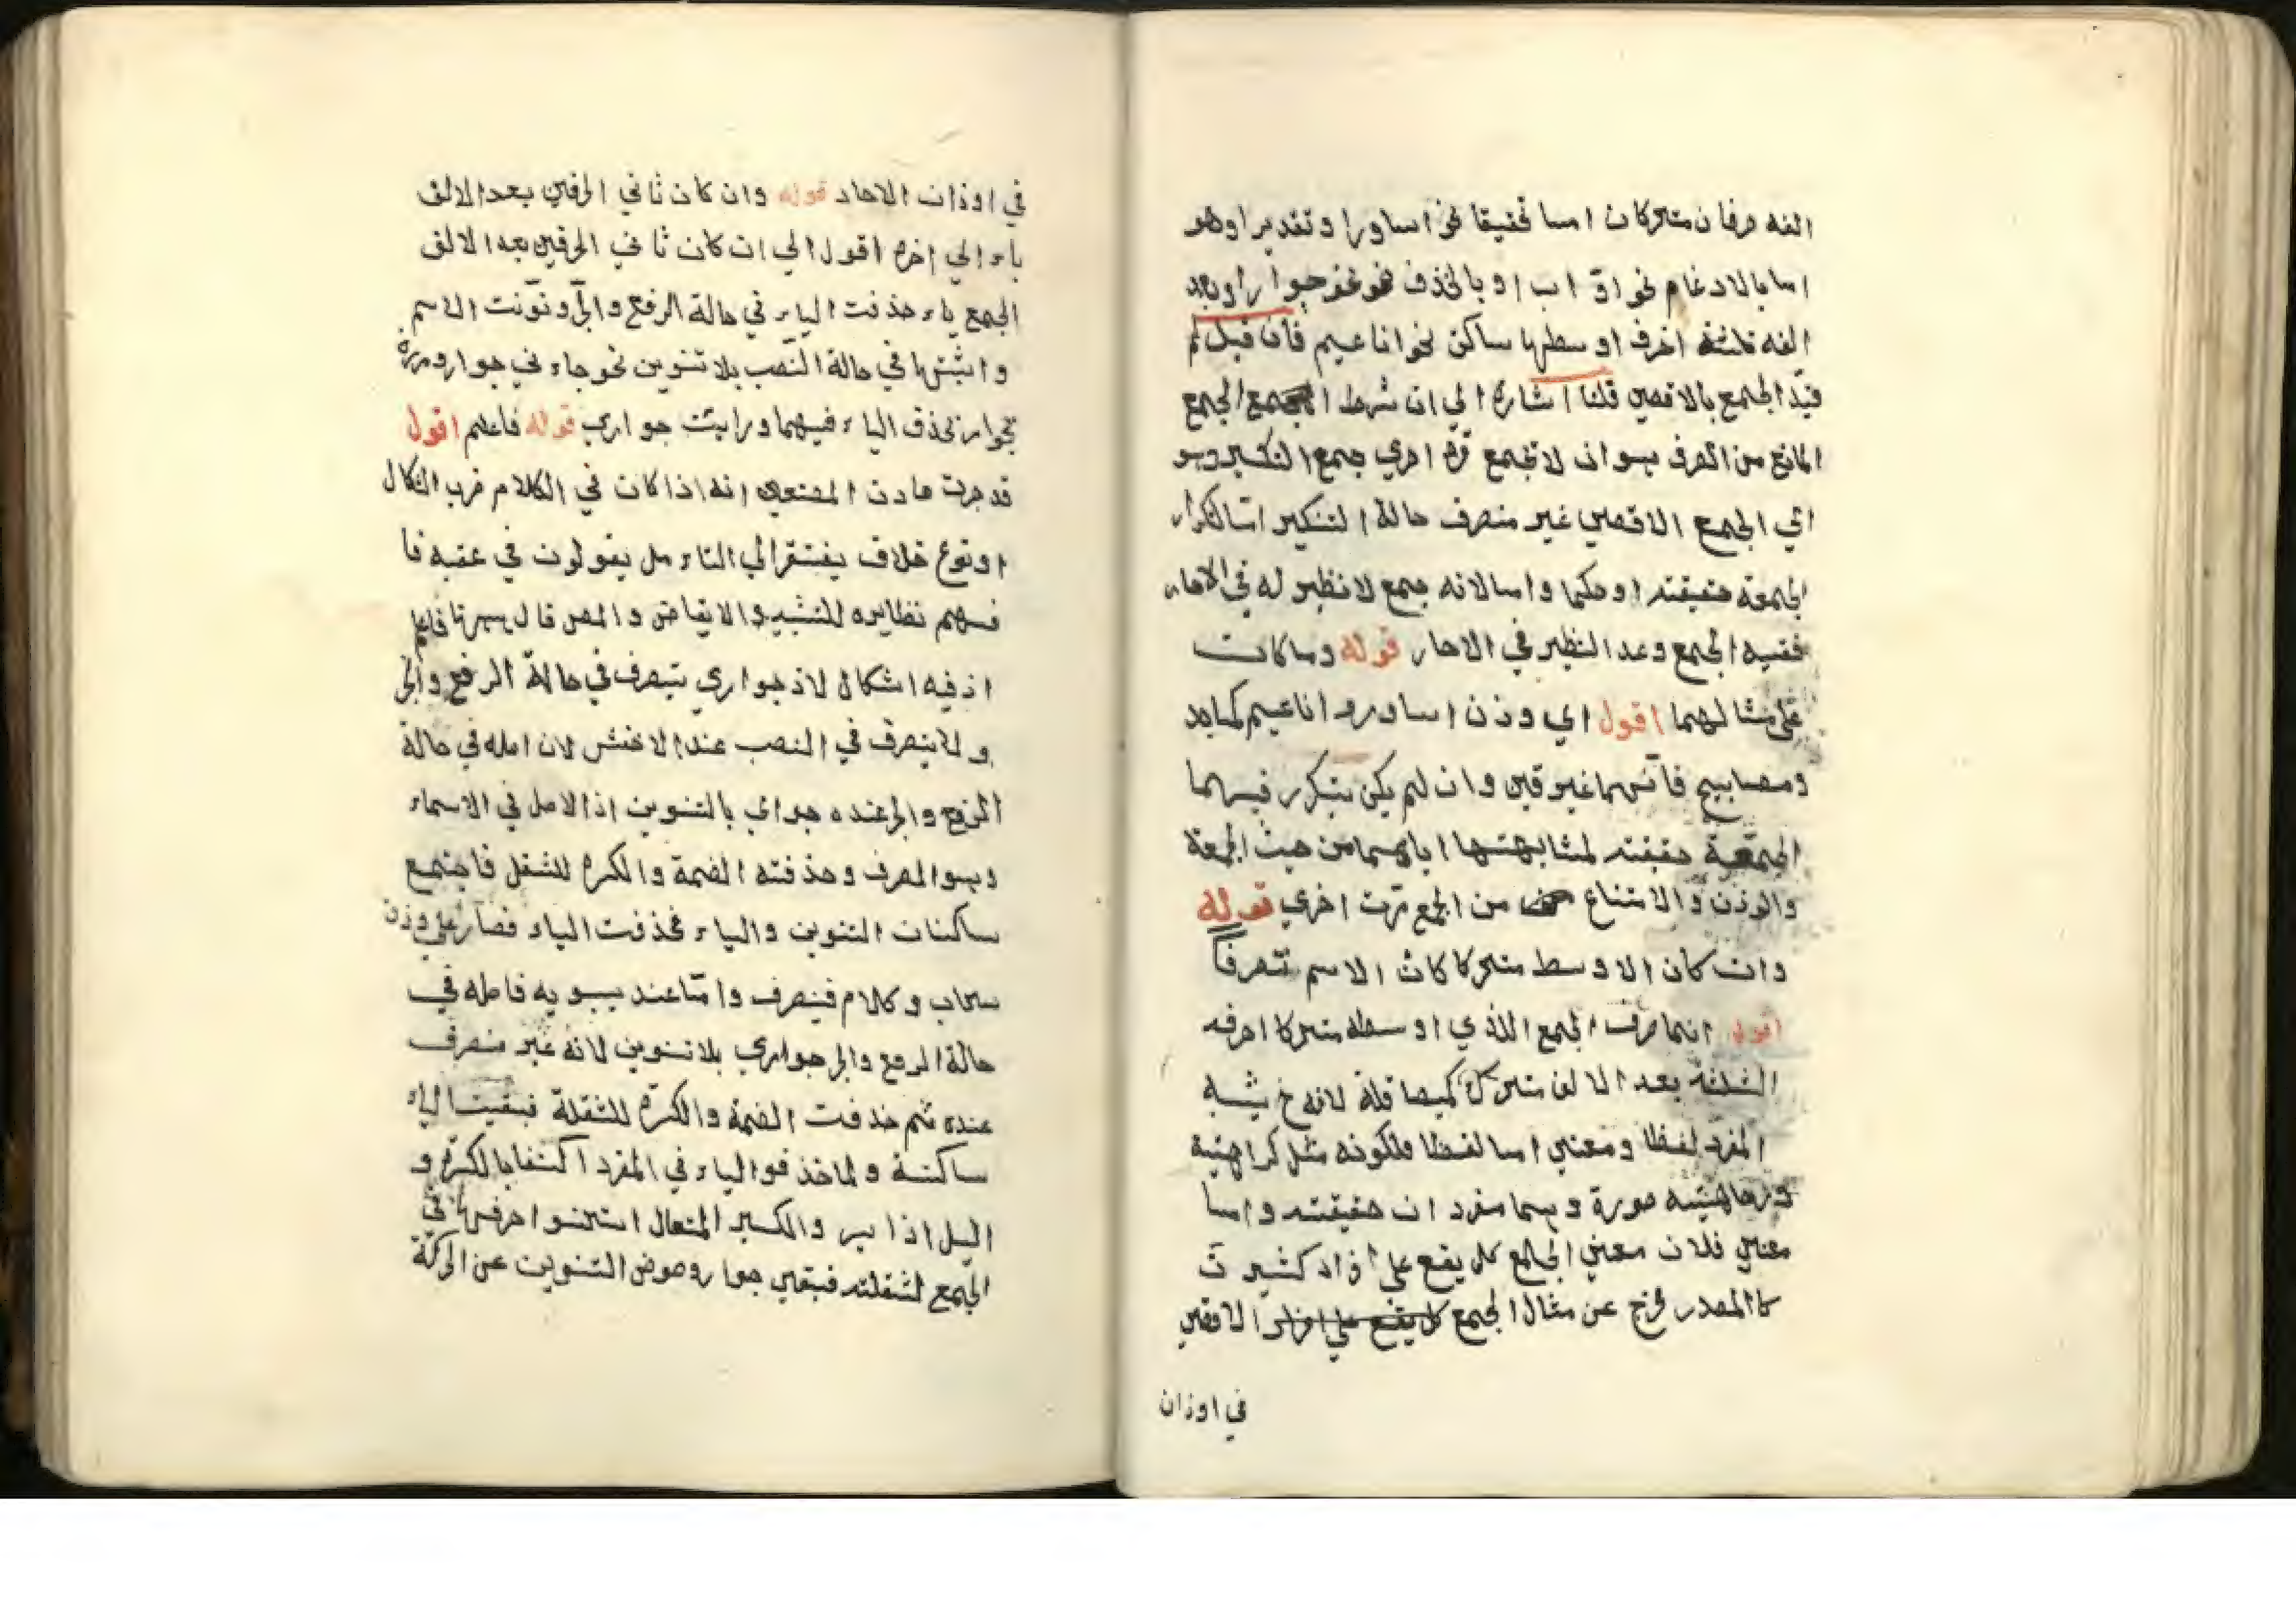 الفه حرفان متحركان اما تحقيقا نحو اساورا وتقديرا وهو
اما بالادغام نحو دواب او بالحذف نحو جوار او بعد
الفه ثلثة احرف اوسطها ساكن نحو اناعيم فان قيل لم
قيد الجمع بالاقصى قلنا اشارة الي ان شرط الجمع
المانع من الصرف هو ان لا تجمع مرة اخري جمع التكسير وهو
اي الجمع الاقصي غير منصرف حالة التنكير اما لتكرار
الجمعية حقيقته او حكما واما لانه جمع لا نظير له في الاحاد
ففيه الجمع وعد النظير في الاحاد قوله وما كان
علي مثالهما اقول اي وزن اساور واناعيم كمساجد
ومصابيح فانهما غير وان لم يكن يتكرر فيهما
الجمعية حقيقته لمشابهتها اياهما من حيث الجمعة
والوزن والامتناع من الجمع مرت اخري قوله
وان كان الاوسط متحركا كان الاسم
اقول انما صرف الجمع الذي اوسطه متحركا احرفه
الثلثة بعد الالف متحرك كصياقلة لانه ح يشبه
المفرد لفظا ومعني اما لفظا فلكونه مثل كراهية
صورة وهما مفردان حقيقته واما
معني فلان معني الجمع كل يقع علي افراد كثيرت
كالمصدر فخرج عن مثال الجمع الاقصي
في اوزان
في اوزان الاحاد قوله وان كان ثاني الحرفين بعد الالف
ياء الي اخره اقول الي ان كان ثاني الحرفين بعد الالف
الجمع ياء حذفت الياء في حالة الرفع والجر ونونت الاسم
واثبتها في حالة النصب بلا تنوين نحو جاءني جوار ومررة
بجوار بحذف الياء فيهما ورايت جواري قوله فاعلم اقول
قد جرت عادت المصنفين انه اذا كان في الكلام ضرب اشكال
او نوع خلاف يفتقر الي التاء مل يقولون في عقبه فا
فهم نظايره للتنبيه والايقاض والمص قال ههنا فاعلم
اذ فيه اشكال لان جواري ينصرف في حالة الرفع والجر
ولا ينصرف في النصب عند الاخفش لان اصله في حالة
الرفع والجر عنده جواري بالتنوين اذ الاصل في الاسماء
وهو الصرف وحذفته الضمة والكسرة للثقل فاجتمع
ساكنان التنوين والياء فحذفت الياء فصار علي وزن
سحاب وكلام فينصرف واما عند سيبويه فاصله في
حالة الرفع والجر جواري بلا تنوين لانه غير منصرف
عنده ثم حذفت الضمة والكسرة للثقلة فبقيت الياء
ساكنة ولما حذفوا الياء في المفرد اكتفا بالكسرة و
اليل اذا يسر والكبير المتعال استحسنوا حذفها في
الجمع لثقلته فبقي جوار وعوض التنوين عن الحركة